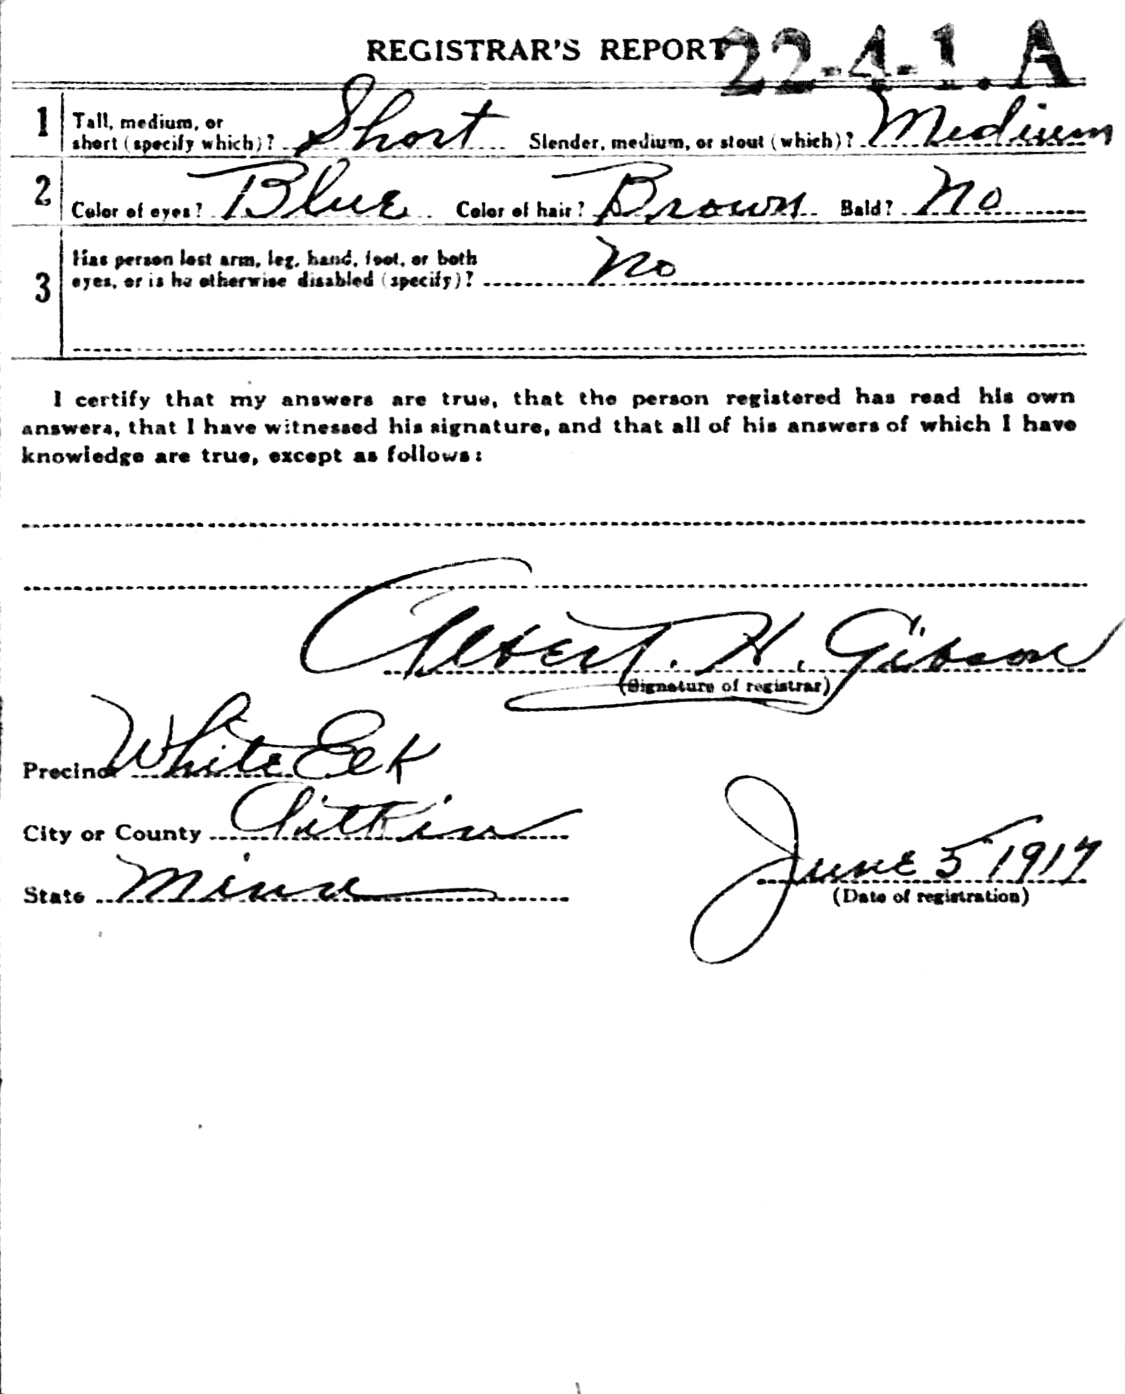 REGISTRAR'S REPORT 22-4-1. A
1 Tall, medium, or short (specify which)? Short Slender, medium, or stout (which)? Medium
2 Color of eyes? Blue Color of hair? Brown Bald? No
3 Has person lost arm, leg, hand, foot, or both
eyes, or is he otherwise disabled (specify)? No
I certify that my answers are true, that the person registered has read his own
answers, that I have witnessed his signature, and that all of his answers of which I have
knowledge are true, except as follows:
Albert. H. Gibson
(Signature of registrar)
Precinct White Elk
City or County Aitkin
State Minn
June 5 1917
(Date of registration)